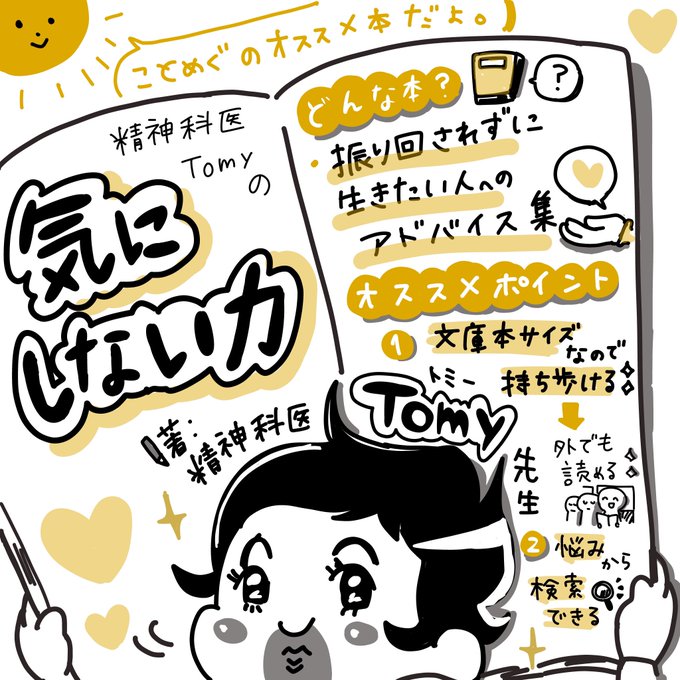 ことめぐのオススメ本だよ。
精神科医
Tomy
の
気に
しない力
著:
精神科医
トミー
Tomy
先生
どんな本?
?
・振り回されずに
生きたい人への
アドバイス集
オススメポイント
1 文庫本サイズ
なので
持ち歩ける
外でも
読める
2 悩みから
検索
できる